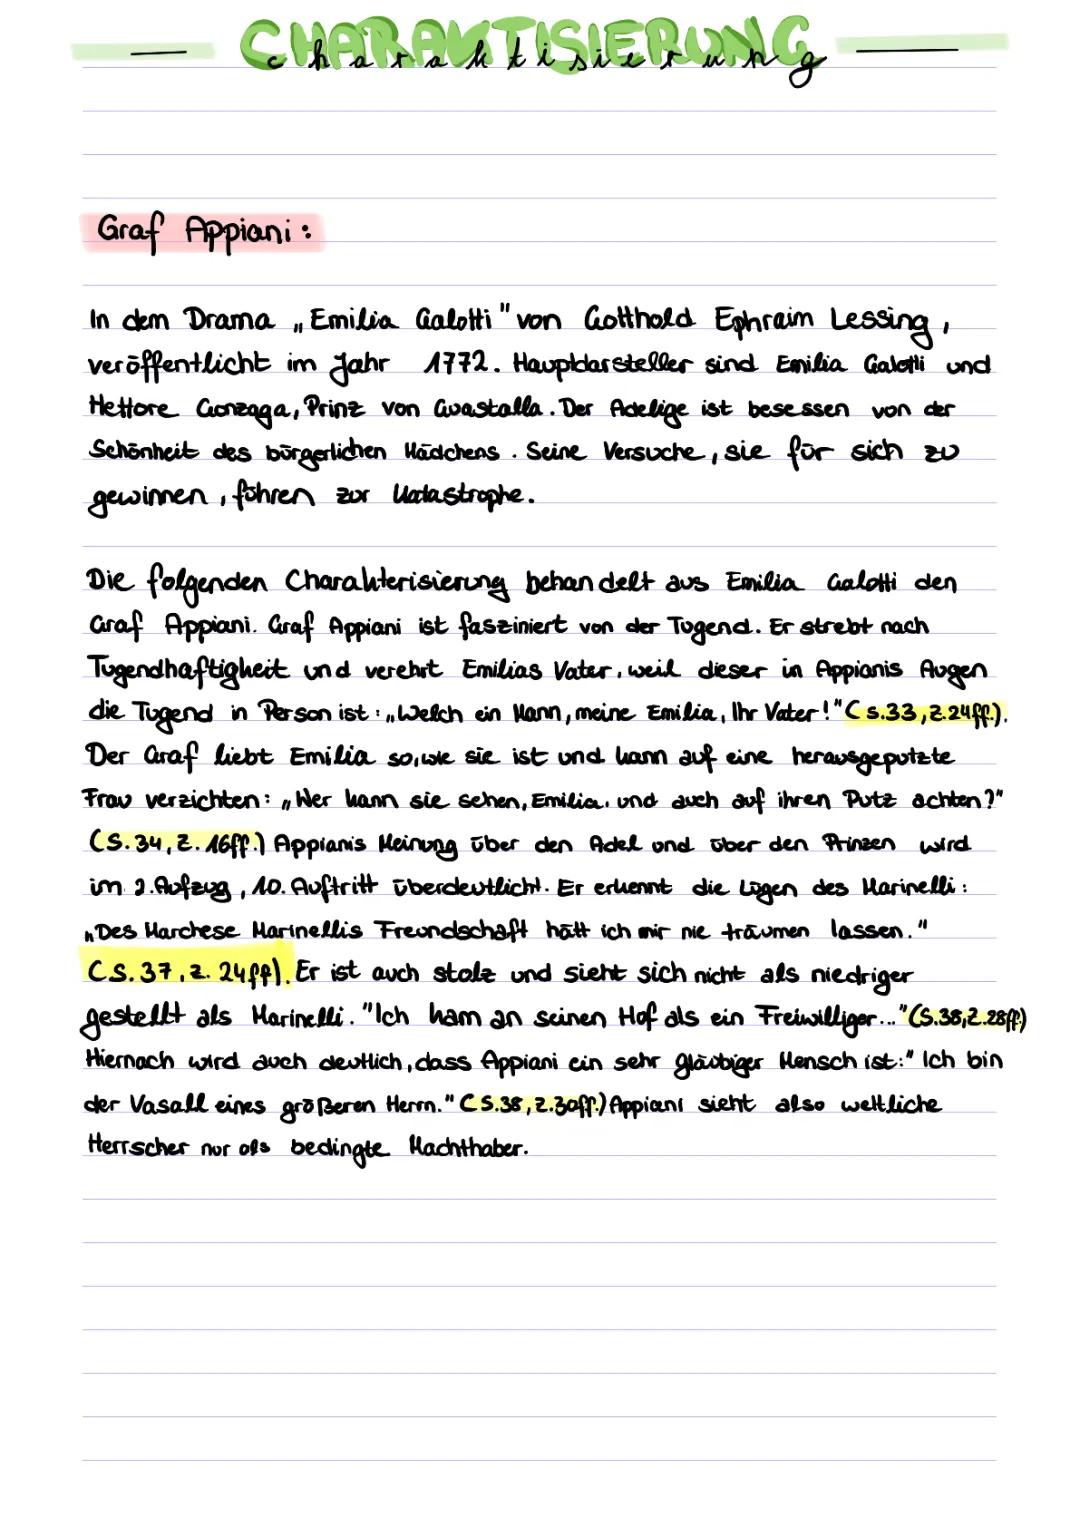 CHARAKTISIERUNG
charaktisierung
Graf Appiani:
In dem Drama „Emilia Galotti" von Gotthold Ephraim Lessing,
veröffentlicht im Jahr 1772. Hauptdarsteller sind Emilia Galotti und
Hettore Gonzaga, Prinz von Guastalla. Der Adelige ist besessen von der
Schönheit des bürgerlichen Mädchens. Seine Versuche, sie für sich zu
gewinnen, führen zur Katastrophe.
Die folgenden Charakterisierung behandelt aus Emilia Galotti den
Graf Appiani. Graf Appiani ist fasziniert von der Tugend. Er strebt nach
Tugendhaftigkeit und verehrt Emilias Vater, weil dieser in Appianis Augen
die Tugend in Person ist: „Welch ein Mann, meine Emilia, Ihr Vater!" (S.33, Z.24ff.).
Der Graf liebt Emilia so, wie sie ist und kann auf eine herausgeputzte
Frau verzichten: „Wer kann sie sehen, Emilia, und auch auf ihren Putz achten?"
(S.34, Z. 16ff.) Appianis Meinung über den Adel und über den Prinzen wird
im 2.Aufzug, 10. Auftritt überdeutlicht. Er erkennt die Lügen des Marinelli:
„Des Marchese Marinellis Freundschaft hätt ich mir nie träumen lassen."
(S.37, Z. 24ff). Er ist auch stolz und sieht sich nicht als niedriger
gestellt als Marinelli. "Ich kam an seinen Hof als ein Freiwilliger..." (S.38, Z.28ff.)
Hiernach wird auch deutlich, dass Appiani ein sehr gläubiger Mensch ist:" Ich bin
der Vasall eines größeren Herrn." (S.38, Z.30ff.) Appiani sieht also weltliche
Herrscher nur als bedingte Machthaber.